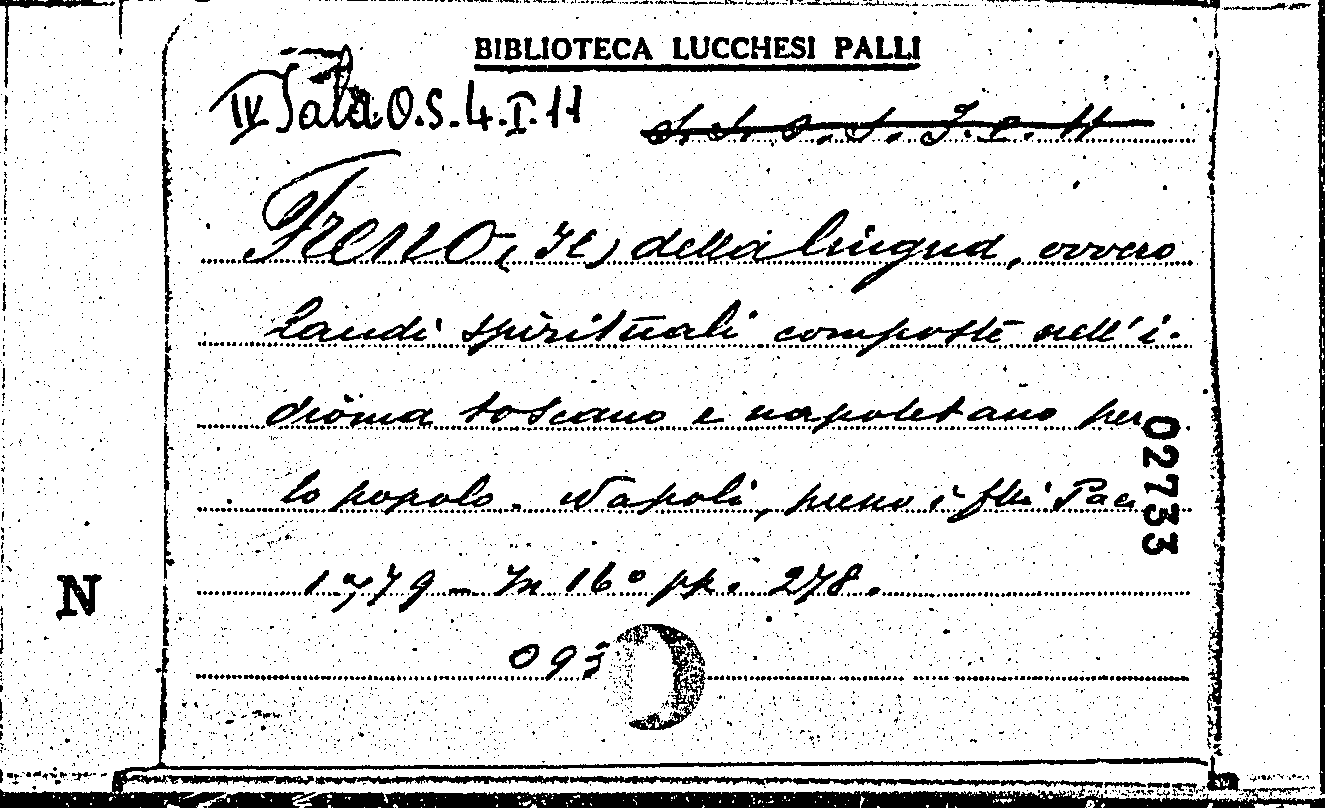 BIBLIOTECA LUCCHESI PALLI
IV Sala O.S.4.I.11
FRENO (Il) della lingua, ovvero
laudi spirituali composte nell'i-
dioma toscano e napoletano per
lo popolo. Napoli, presso i flli Paci
1779 - In 16° pp. 278.
093
02733
N